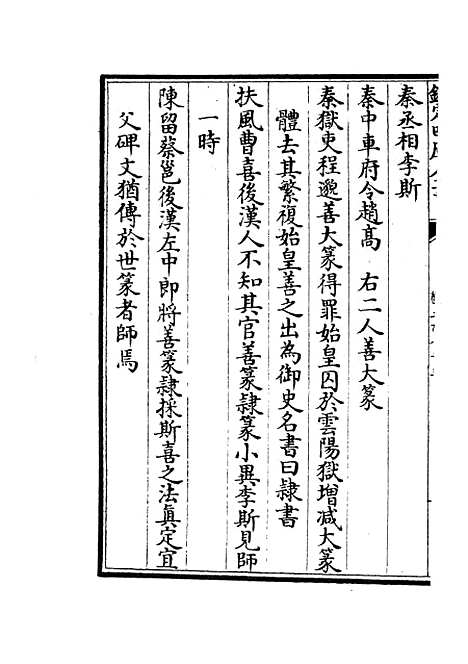 秦丞相李斯
秦中車府令趙髙　右二人善大篆
秦獄吏程邈善大篆得罪始皇囚於雲陽獄增减大篆
體去其繁複始皇善之出為御史名書曰隷書
扶風曹喜後漢人不知其官善篆隷篆小異李斯見師
一時
陳留蔡邕後漢左中郎將善篆隷採斯喜之法真定宜
父碑文猶傳於世篆者師焉